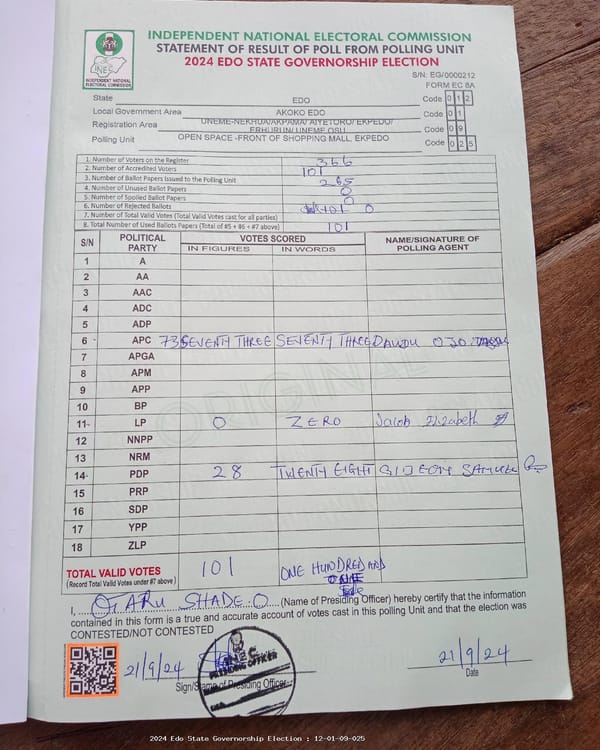 INDEPENDENT NATIONAL ELECTORAL COMMISSION
STATEMENT OF RESULT OF POLL FROM POLLING UNIT
2024 EDO STATE GOVERNORSHIP ELECTION
INEC
INDEPENDENT NATIONAL ELECTORAL COMMISSION
S/N: EG/0000212
FORM EC 8A
State EDO Code 0 1 2
Local Government Area AKOKO EDO Code 0 1
Registration Area UNEME-NEKHUA/AKPAMA/ AIYETORO/ EKPEDO/ ERHURUN/ UNEME OSU Code 0 9
Polling Unit OPEN SPACE -FRONT OF SHOPPING MALL, EKPEDO Code 0 2 5
1. Number of Voters on the Register 366
2. Number of Accredited Voters 101
3. Number of Ballot Papers Issued to the Polling Unit
4. Number of Unused Ballot Papers
5. Number of Spoiled Ballot Papers 0
6. Number of Rejected Ballots 0
7. Number of Total Valid Votes (Total Valid Votes cast for all parties) 101
8. Total Number of Used Ballots Papers (Total of #5 + #6 + #7 above) 101
S/N POLITICAL PARTY VOTES SCORED NAME/SIGNATURE OF POLLING AGENT
IN FIGURES IN WORDS
1 A
2 AA
3 AAC
4 ADC
5 ADP
6 APC 73 SEVENTY THREE SEVENTY THREE DAUDU OJO
7 APGA
8 APM
9 APP
10 BP
11 LP 0 ZERO Jacob Elizabeth
12 NNPP
13 NRM
14 PDP 28 TWENTY EIGHT GIDEON SAMUEL
15 PRP
16 SDP
17 YPP
18 ZLP
ORIGINAL
TOTAL VALID VOTES 101 ONE HUNDRED AND ONE
(Record Total Valid Votes under #7 above)
I, OTARU SHADE.O (Name of Presiding Officer) hereby certify that the information
contained in this form is a true and accurate account of votes cast in this polling Unit and that the election was
CONTESTED/NOT CONTESTED
21/9/24 21/9/24
INEC
PRESIDING OFFICER
Sign/Stamp of Presiding Officer Date
2024 Edo State Governorship Election : 12-01-09-025